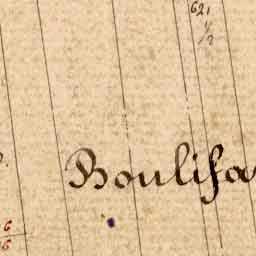 621
1/2
Boulifa
6
6